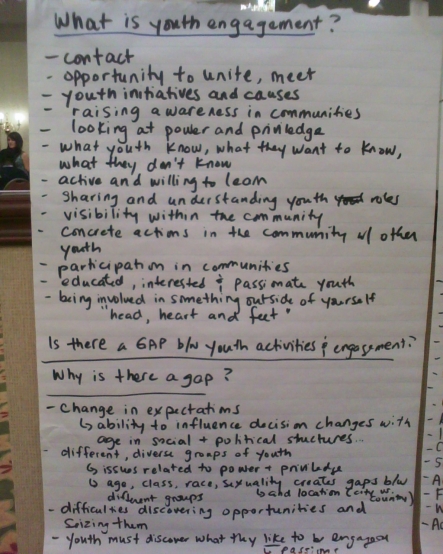 What is youth engagement?
- contact
- opportunity to unite, meet
- youth initiatives and causes
- raising awareness in communities
- looking at power and priviledge
- what youth know, what they want to know,
what they don't know
- active and willing to learn
- sharing and understanding youth roles
- visibility within the community
- concrete actions in the community w/ other
youth
- participation in communities
- educated, interested & passionate youth
- being involved in something outside of yourself
"head, heart and feet"
Is there a GAP b/w youth activities & engagement?
Why is there a gap?
- Change in expectations
↳ ability to influence decision changes with
age in social + political structures...
- different, diverse groups of youth
↳ issues related to power + priviledge
↳ age, class, race, sexuality creates gaps b/w
different groups
↳ and location (city vs. country)
- difficulties discovering opportunities and
seizing them
- youth must discover what they like to be engaged
↳ passions